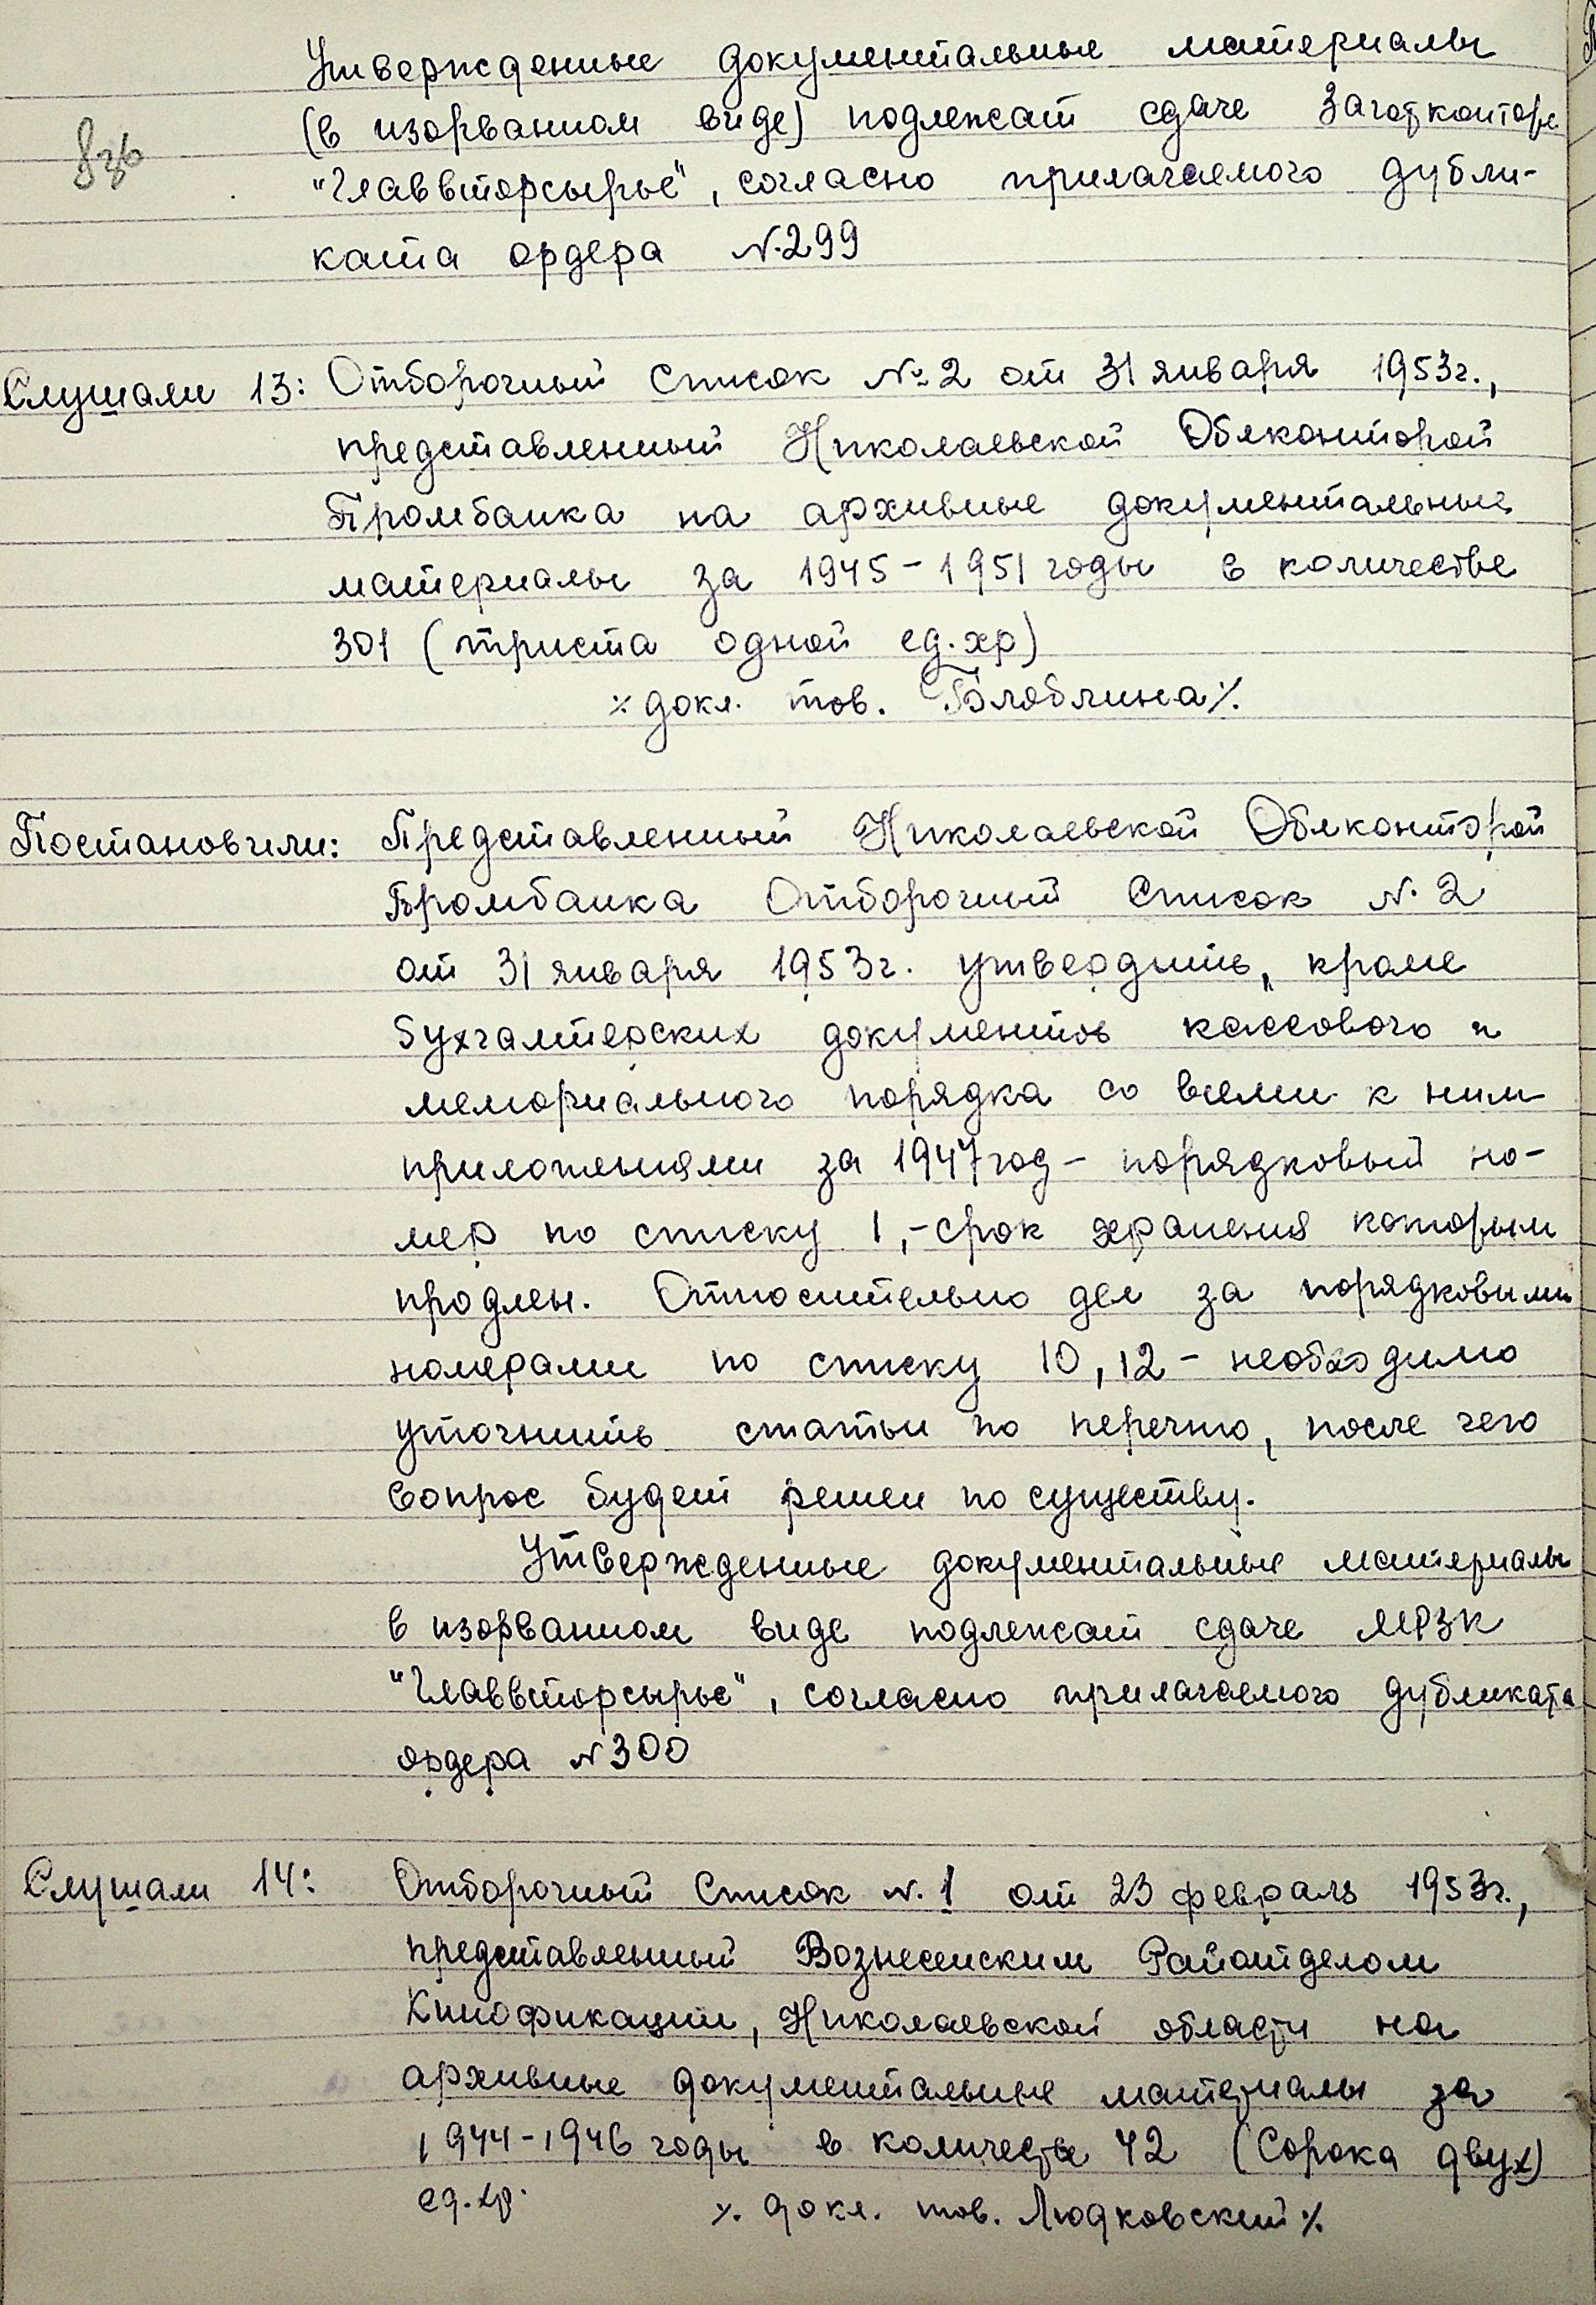 Утвержденные документальные материалы
(в изорванном виде) подлежат сдаче Заготконторе
"Главвторсырье", согласно прилагаемого дубли-
ката ордера №299
Слушали 13: Отборочный Список №2 от 31 января 1953г.,
представленный Николаевской Облконторой
Промбанка на архивные документальные
материалы за 1945-1951 годы в количестве
301 (триста одной ед.хр)
% докл. тов. Бляблина %.
Постановили: Представленный Николаевской Облконторой
Промбанка Отборочный Список №2
от 31 января 1953г. утвердить, кроме
бухгалтерских документов кассового и
мемориального порядка со всеми к ним
приложениями за 1947 год - порядковый но-
мер по списку 1,- срок хранения которым
продлен. Относительно дел за порядковыми
номерами по списку 10, 12 - необходимо
уточнить статьи по перечню, после чего
вопрос будет решен по существу.
Утвержденные документальные материалы
в изорванном виде подлежат сдаче МРЗК
"Главвторсырье", согласно прилагаемого дубликата
ордера №300
Слушали 14: Отборочный Список №1 от 23 февраль 1953г.,
представленный Вознесенским Райотделом
Кинофикации, Николаевской области на
архивные документальные материалы за
1944-1946 годы в количестве 42 (Сорока двух)
ед.хр. %. докл. тов. Людковский %.